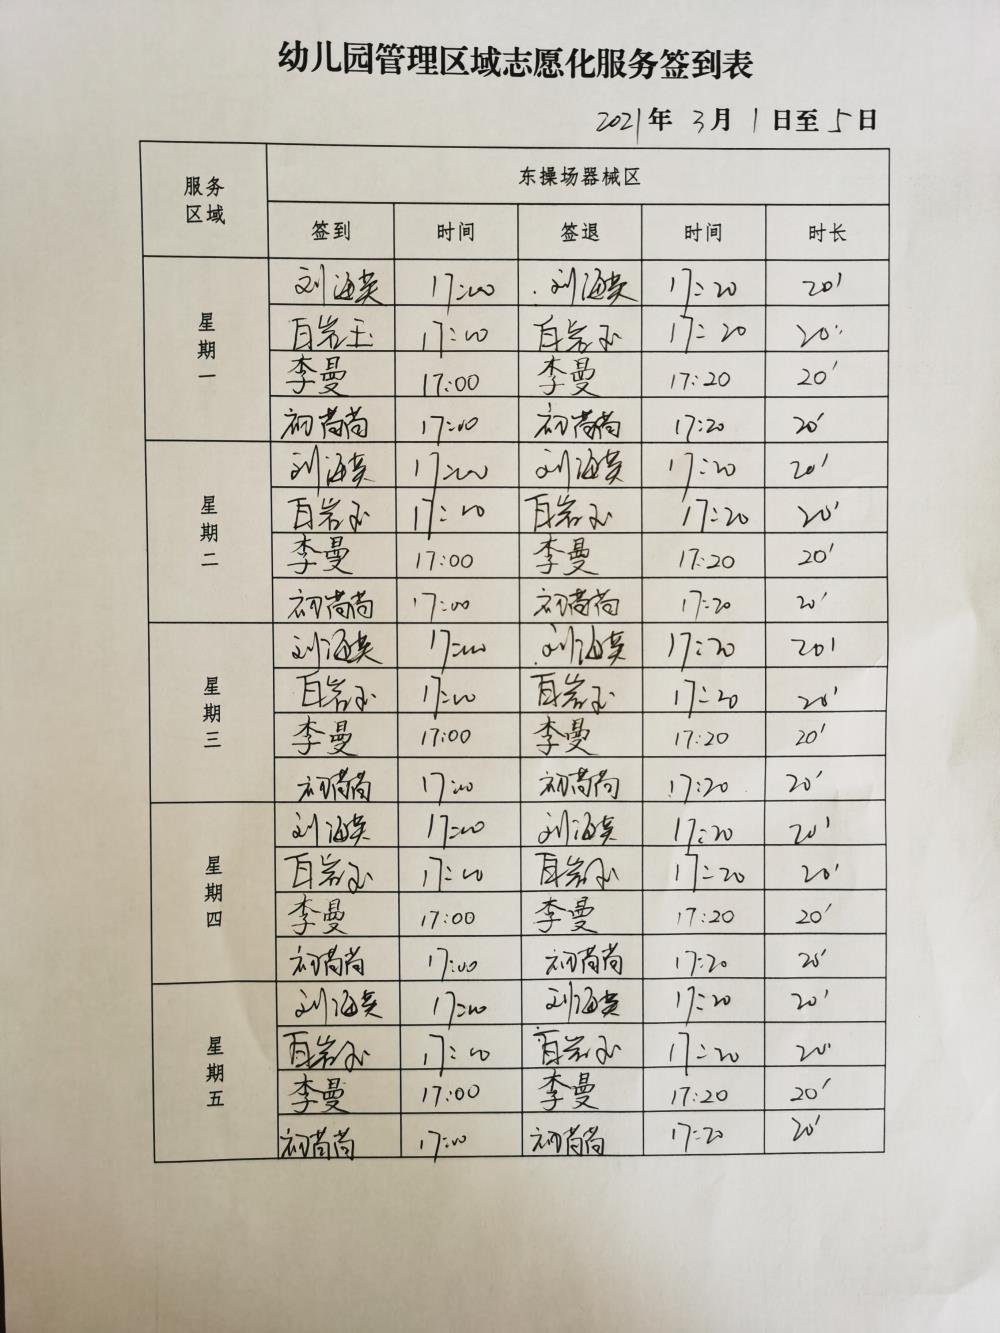 幼儿园管理区域志愿化服务签到表
2021年 3月 1日至 5日
服务区域 东操场器械区
签到 时间 签退 时间 时长
星期一
刘海英 17:00 刘海英 17:20 20'
百岩玉 17:00 百岩玉 17:20 20'
李曼 17:00 李曼 17:20 20'
初芮芮 17:00 初芮芮 17:20 20'
星期二
刘海英 17:00 刘海英 17:20 20'
百岩玉 17:00 百岩玉 17:20 20'
李曼 17:00 李曼 17:20 20'
初芮芮 17:00 初芮芮 17:20 20'
星期三
刘海英 17:00 刘海英 17:20 20'
百岩玉 17:00 百岩玉 17:20 20'
李曼 17:00 李曼 17:20 20'
初芮芮 17:00 初芮芮 17:20 20'
星期四
刘海英 17:00 刘海英 17:20 20'
百岩玉 17:00 百岩玉 17:20 20'
李曼 17:00 李曼 17:20 20'
初芮芮 17:00 初芮芮 17:20 20'
星期五
刘海英 17:00 刘海英 17:20 20'
百岩玉 17:00 百岩玉 17:20 20'
李曼 17:00 李曼 17:20 20'
初芮芮 17:00 初芮芮 17:20 20'